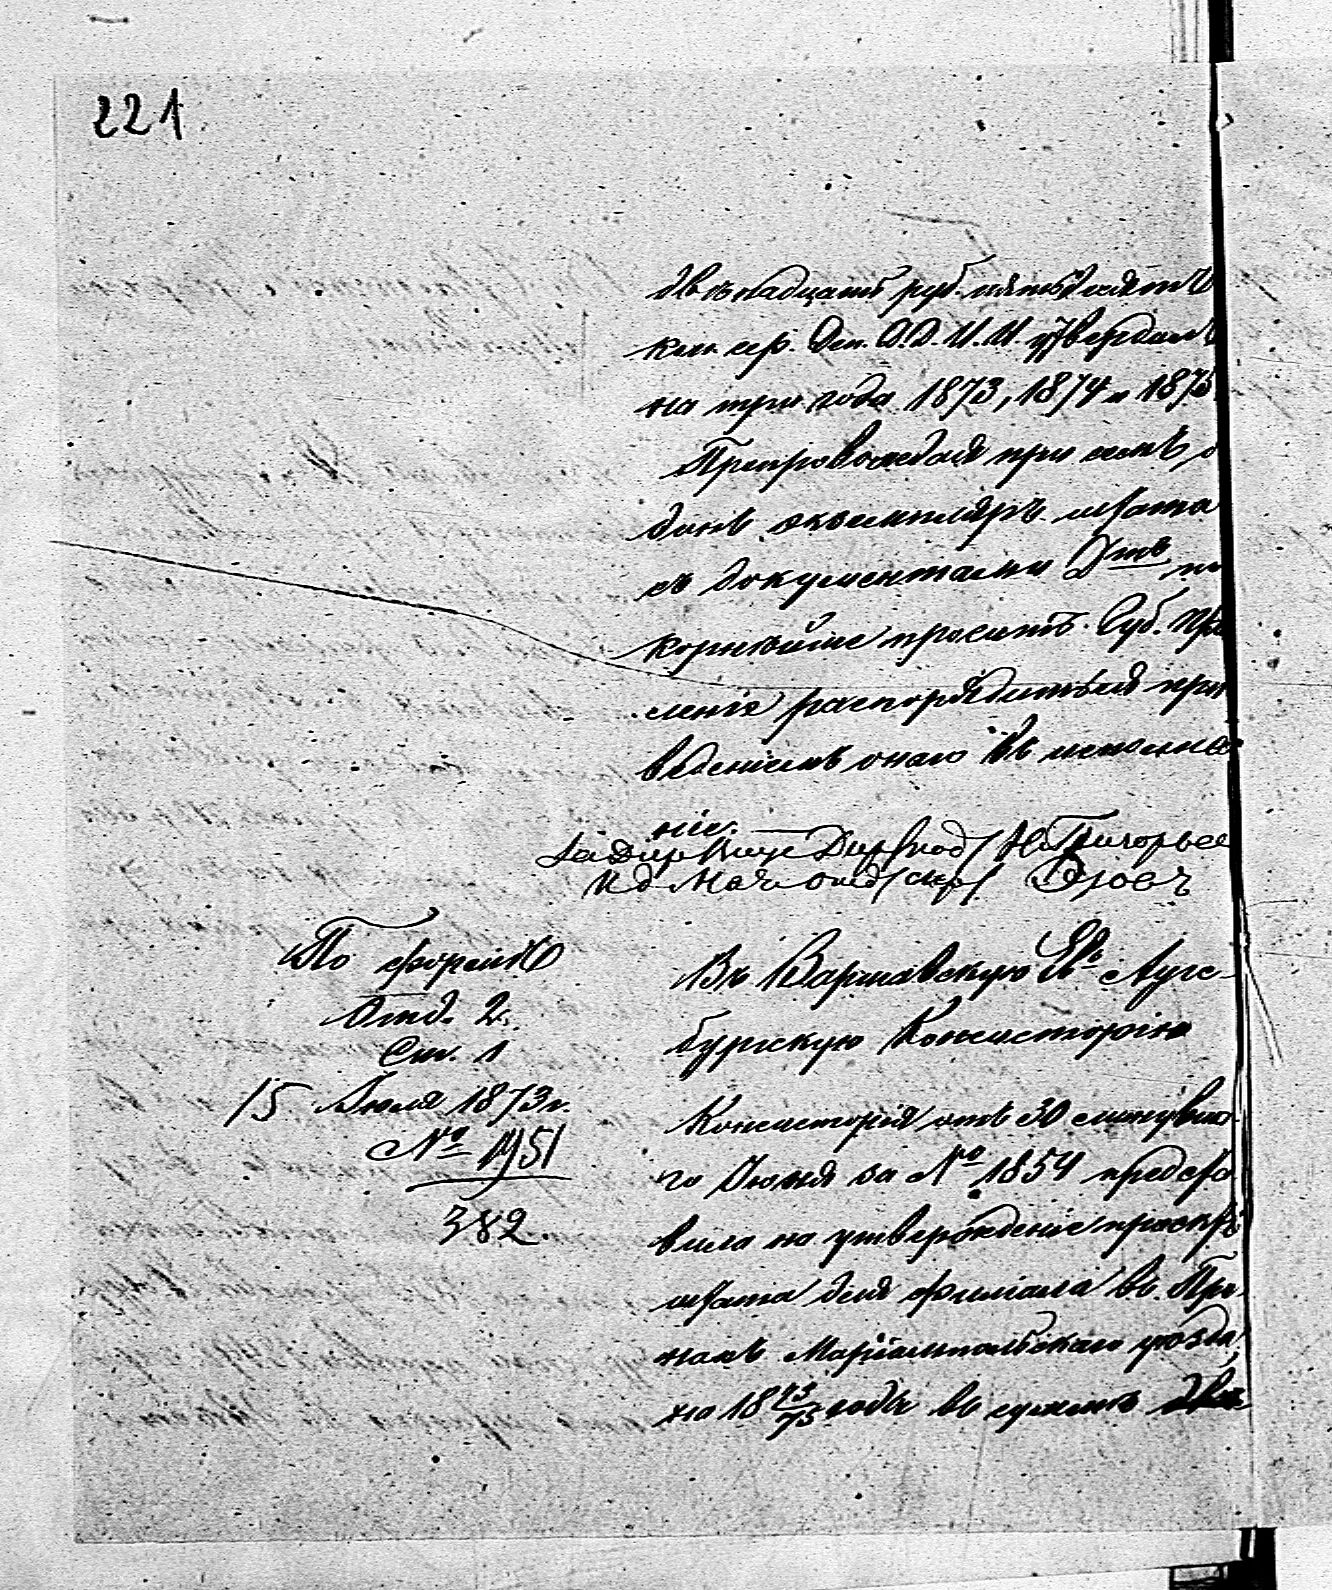 221
двѣнадцать руб. пятьдесятъ
коп. сер. Деп. Д.Д.И.И. утвердилъ
на три года 1873, 1874 и 1875
Препровождая при семъ о
динъ экземпляръ штата
съ документами Д-тъ по
корнѣйше проситъ Губ. Прав
леніе распорядиться при
веденіемъ онаго въ исполне
ніе.
За Дир. Вице Дир. /под/ Н. Григорьев
И д Нач отд /скр/
По формѣ
Отд. 2.
Ст. 1
15 Июля 1873 г.
№ 1951
382.
Въ Варшавскую Ев. Аугс-
бургскую Консисторію
Консисторія отъ 30 минувша-
го Іюня за № 1854 предста
вила на утвержденіе проектъ
штата для филіала въ Пре-
нахъ Маріампольскаго уѣзда,
на 1873/75 года въ суммѣ двѣ-